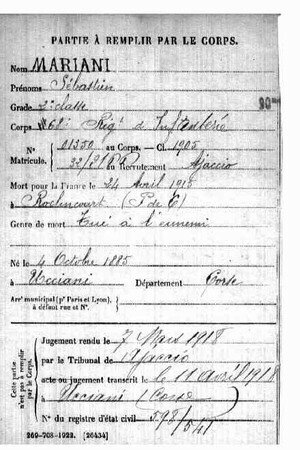 PARTIE À REMPLIR PAR LE CORPS.
Nom MARIANI
Prénoms Sébastien
Grade 2e classe
Corps Régt d'Infanterie
N° 01350 au Corps. — Cl. 1905
Matricule. au Recrutement Ajaccio
Mort pour la France le 24 Avril 1915
à Roclincourt (P de C)
Genre de mort Tué à l'ennemi
Né le 4 Octobre 1885
à Ucciani Département Corse
Arrt municipal (pr Paris et Lyon),
à défaut rue et N°.
Cette partie
n'est pas à remplir
par le Corps.
Jugement rendu le 7 Mars 1918
par le Tribunal de Ajaccio
acte ou jugement transcrit le 11 avril 1918
à Ucciani (Corse)
N° du registre d'état civil 598/541
269-708-1922. [26434]